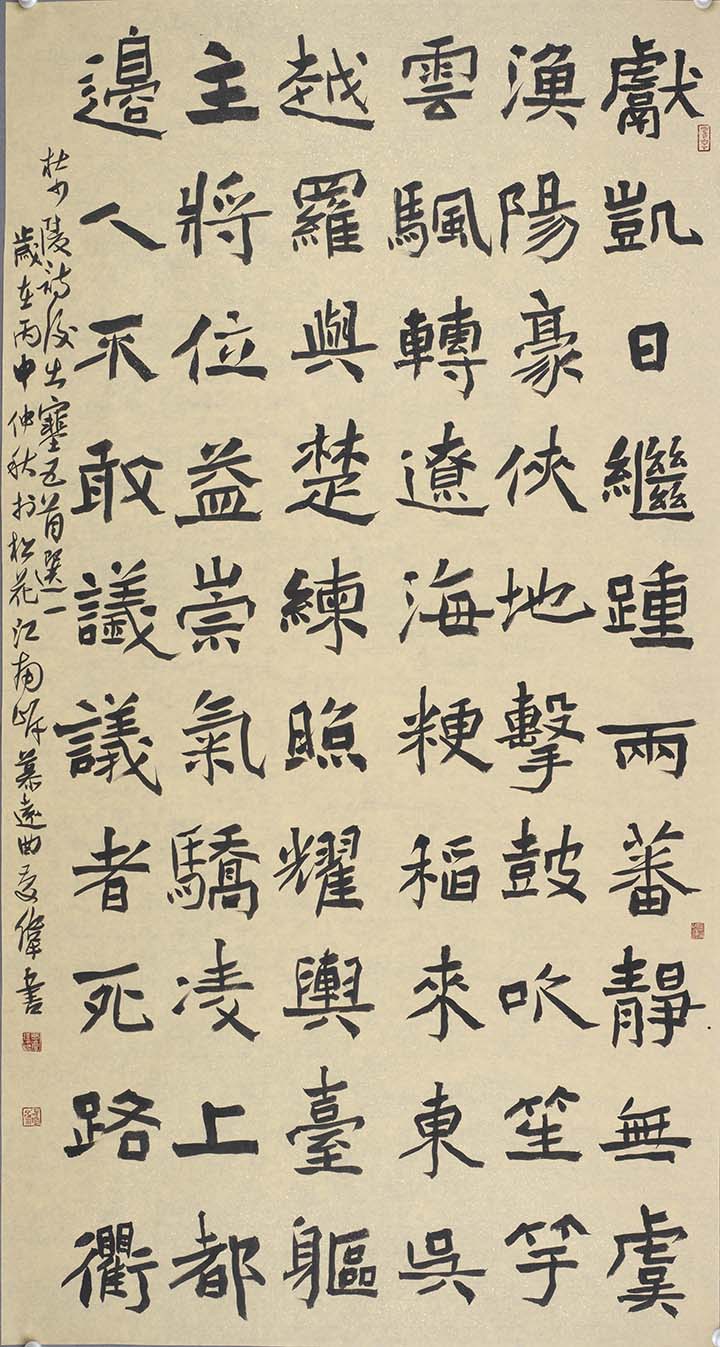 獻凱日繼踵兩蕃靜無虞
漁陽豪俠地擊鼓吹笙竽
雲颿轉遼海粳稻來東吳
越羅與楚練照耀輿臺軀
主將位益崇氣驕凌上都
邊人不敢議議者死路衢
杜少陵詩後出塞五首選一
歲在丙申仲秋於松花江南岸慕遠曲偉書